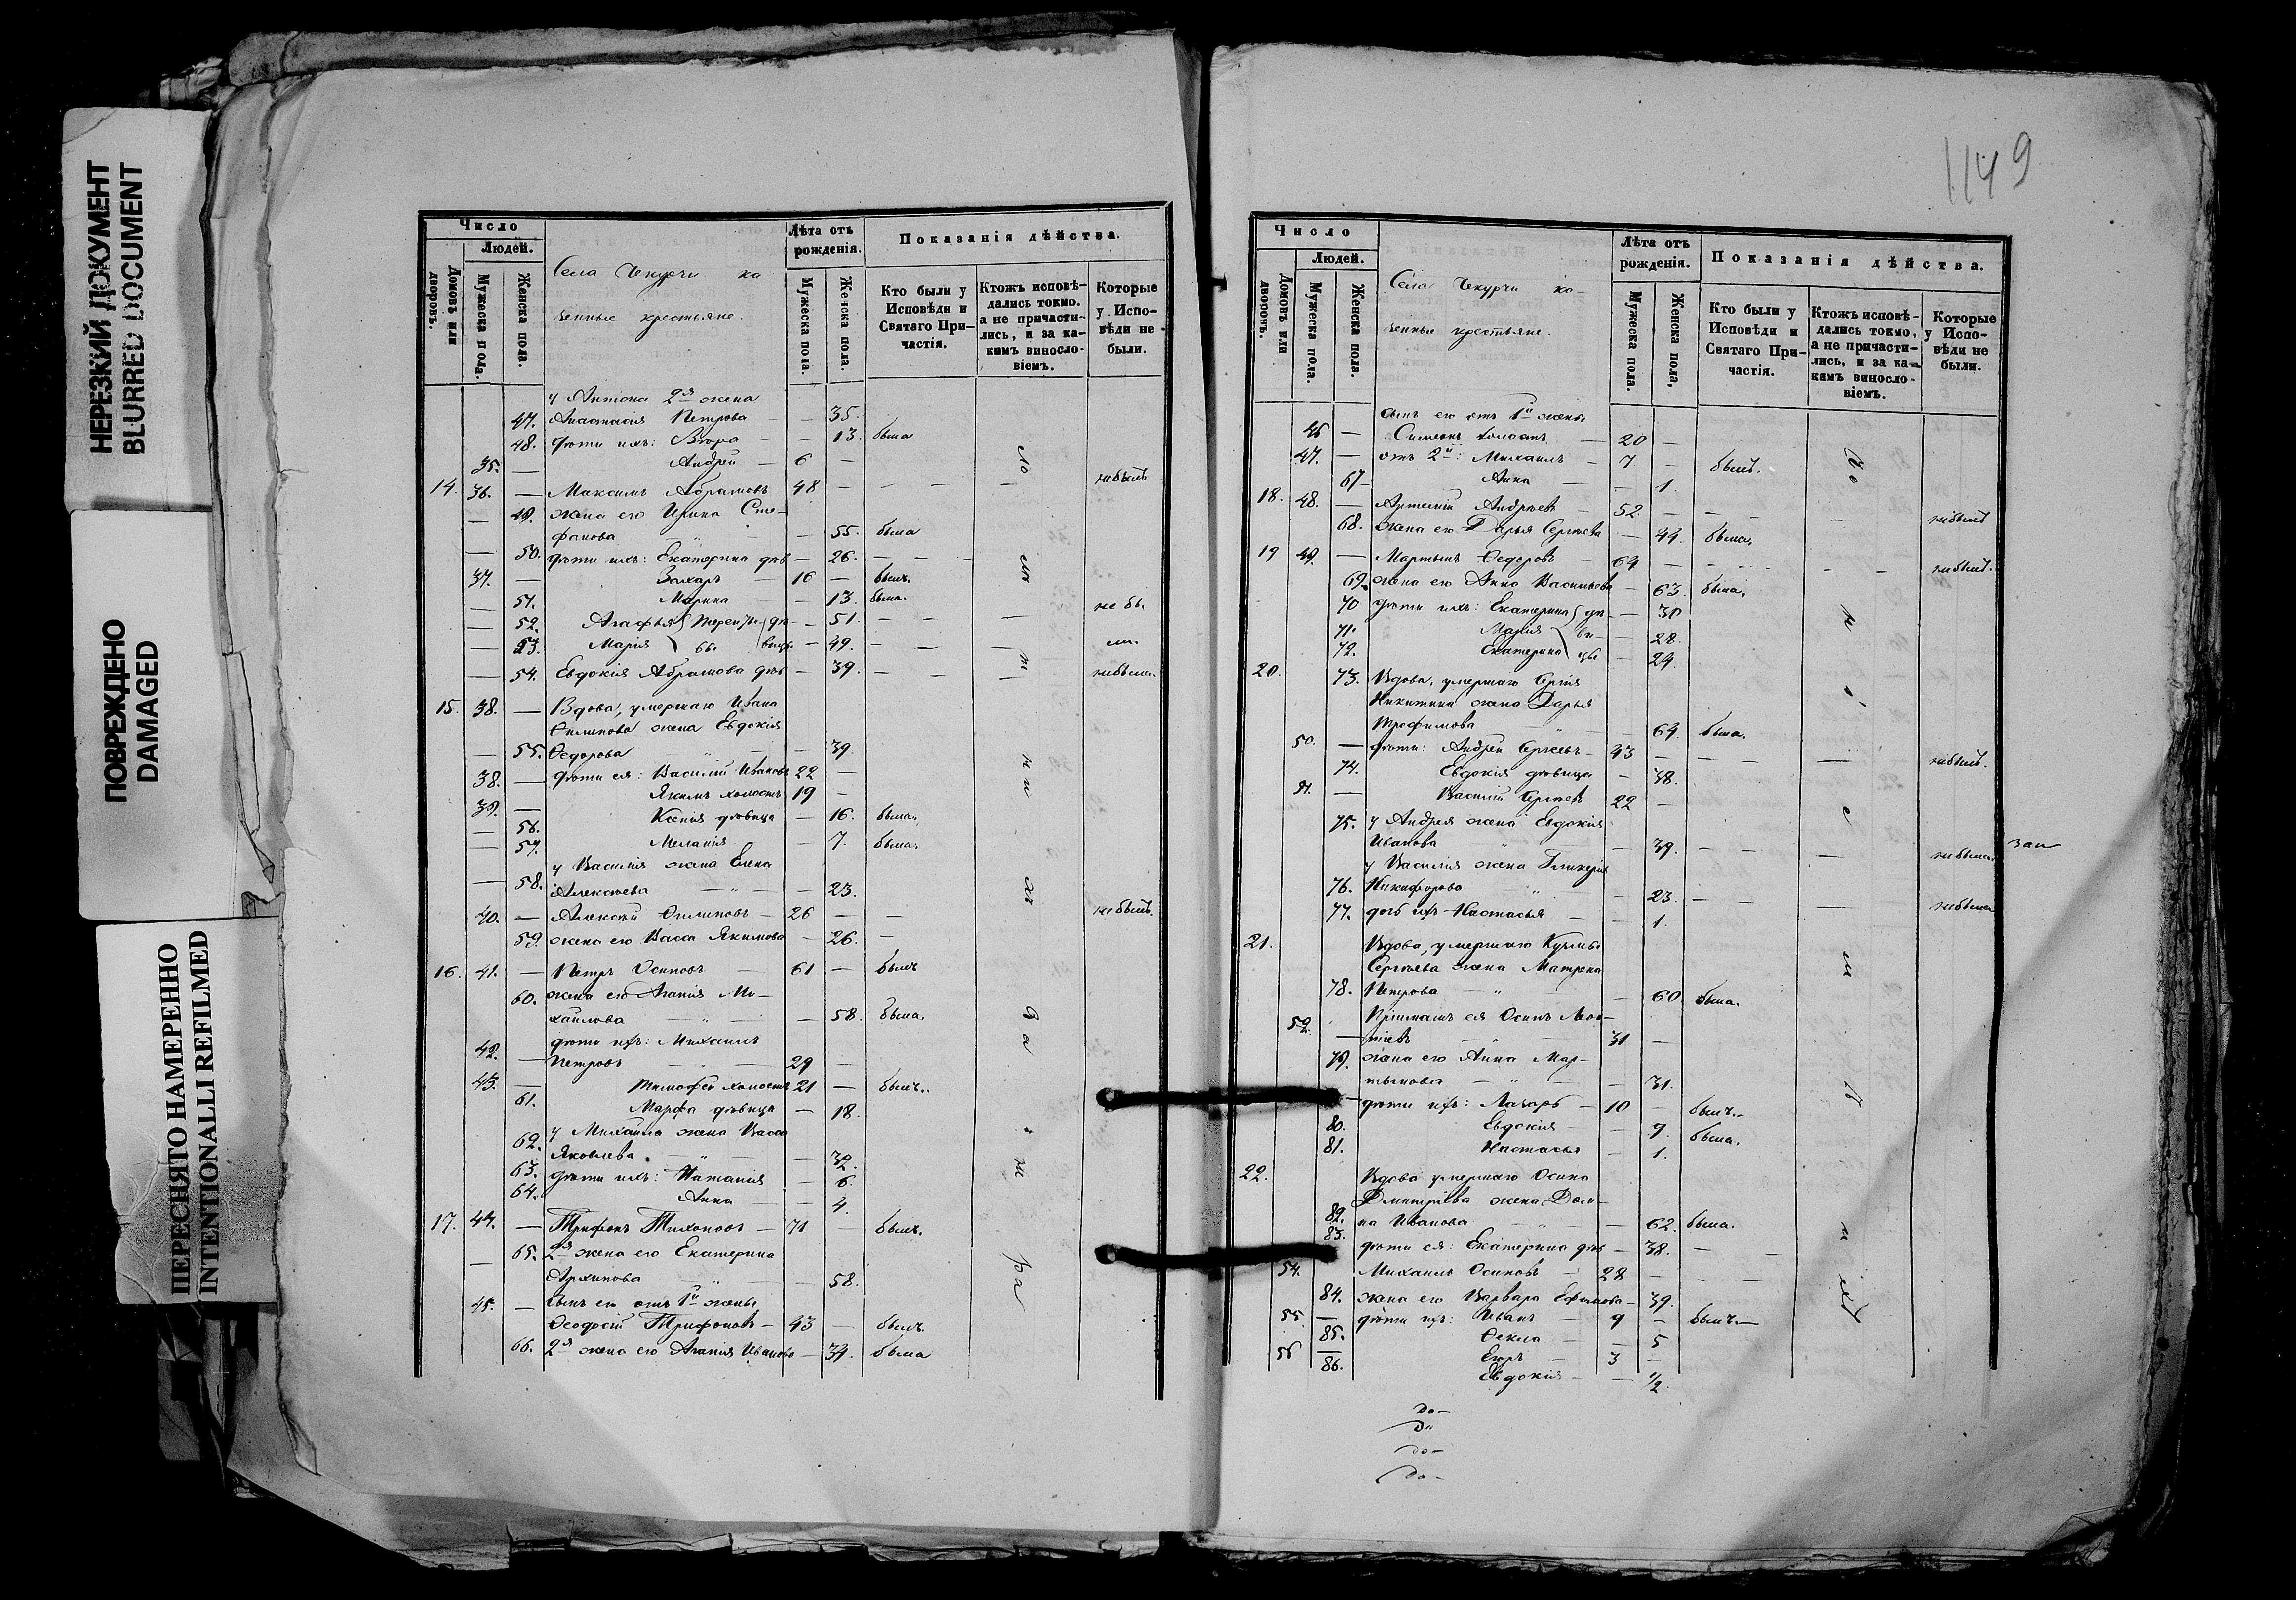 НЕРЕЗКИЙ ДОКУМЕНТ
BLURRED DOCUMENT
ПОВРЕЖДЕНО
DAMAGED
ПЕРЕСНЯТО НАМЕРЕННО
INTENTIONALLI REFILMED
Число
Людей.
Домовъ или дворовъ.
Мужеска пола.
Женска пола.
Села Чекурчи ка
зенные крестьяне.
Лѣта отъ рожденія.
Мужеска пола.
Женска пола.
Показанія дѣйства.
Кто были у Исповѣди и Святаго При-частія.
Ктожъ исповѣ-дались токмо, а не причасти-лись, и за ка-кимъ винословіемъ.
Которые у Испо-вѣди не были.
у Антона 2я жена
47. Анастасія Петрова — — 35.
48. дѣти ихъ: — 13. была
35. — Андрей — 6 —
14. 36. — Максимъ Абрамовъ 48 — — — небылъ
— 49. жена его Ирина Сте-
фанова — — 55. была
— 50. дѣти ихъ: Екатерина дѣв — 26. — — —
37. — Захаръ — 16 — былъ.
— 51. Марина — 13. была.
— 52. Агафья дѣ — 51. — — — не бы
— 53. Марія вицы — 49. — — — ли.
— 54. Евдокія Абрамова дѣв — 39. — — — небыла.
15. 38. — Вдова, умершаго Ивана
Филипова жена Евдокія
— 55. Ѳедорова — — 39.
38. — дѣти ея: Василій Ивановъ 22 —
39. — Якимъ холостъ 19 —
— 56. Ксенія дѣвица — 16. была.
— 57. Меланія — 7. была.
у Василія жена Елена
— 58. Алексѣева — — 23.
40. — Алексѣй Филиповъ — 26 — — небылъ.
59. жена его Васса Якимова — 26. —
16. 41. — Петръ Осиповъ — 61 — былъ
60. жена его Агапія Ми—
хаилова — — 58. была.
дѣти ихъ: Михаилъ
42. — Петровъ — 29 —
43. — Тимофей холостъ 21 — былъ..
61. Марфа дѣвица — 18.
у Михаила жена Васса
62. Яковлева — — 32.
63. дѣти ихъ: Наталія — 6.
64. Анна — 4.
17. 44. — Трифонъ Тихоновъ — 71 — былъ.
— 65. 2я жена его Екатерина
Архипова — — 58.
45. — сынъ его отъ 1й жены
Ѳеодосій Трифоновъ — 43 — былъ.
66. 2я жена его Агапія Иванова — 39. была
1149
Число
Людей.
Домовъ или дворовъ.
Мужеска пола.
Женска пола.
Села Чекурчи ка—
зенные крестьяне.
Лѣта отъ рожденія.
Мужеска пола.
Женска пола,
Показанія дѣйства.
Кто были у Исповѣди и Святаго При-частія.
Ктожъ исповѣ-дались токмо, а не причасти-лись, и за ка-кимъ винословіемъ.
Которые у Испо-вѣди не были.
сынъ его отъ 1й жены
46 — Симеонъ холостъ — 20 —
47. — отъ 2й: Михаилъ — 7 — былъ.
67 — Анна — — 1.
18. 48. — Артемій Андреевъ — 52 — — — небылъ
68. жена его Дарья Сергѣева — 44. была.
19 49. — Мартынъ Ѳедоровъ — 64 — — — небылъ.
69. жена его Анна Васильева — 63. была.
70 дѣти ихъ: Екатерина дѣ — 30
71. Марія ви — 28.
72. Екатерина цы — 24
20. 73. Вдова, умершаго Сергія
Никитина жена Дарья
Трофимова — — 64. была.
50. — дѣти: Андрей Сергѣевъ — 43 — — — небылъ.
74. Евдокія дѣвица — 38.
51. — Василій Сергѣевъ 22 —
75. у Андрея жена Евдокія
Иванова — — 39. — — небыла.
у Василія жена Гликерія
76. Никифорова — — 23. — — небыла
77. дочь ихъ — Настасья — — 1.
21. Вдова, умершаго Кузмы
Сергѣева жена Матрена
78. Петрова — — 60. была.
52. Пріимышъ ея Осипъ Леон—
— тіевъ — 31 —
79. жена его Анна Мар—
тынова — — 31.
— дѣти ихъ: Лазарь — 10 — былъ.
80. Евдокія — — 9. была.
81. Настасья — 1.
22. Вдова умершаго Осипа
Дмитріева жена Дом—
82. на Иванова — — 62. была.
83. дѣти ея: Екатерина дѣв — 38. — —
54. Михаилъ Осиповъ — 28 — — —
84. жена его Варвара Ефимова — 39.
55 — дѣти ихъ: Иванъ — 9 — былъ.—
85. Ѳекла — — 5
56 — Егоръ — 3 —
86. Евдокія — — 1/2.
До—
До—
до—